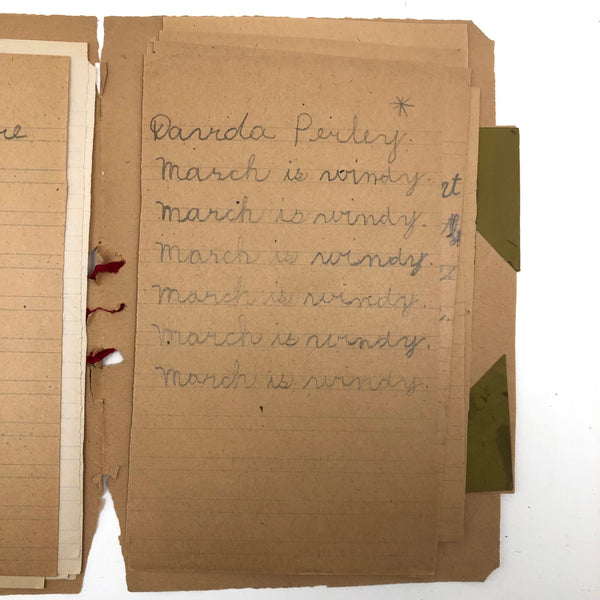 Davida Perley.
March is windy.
March is windy.
March is windy.
March is windy.
March is windy.
March is windy.